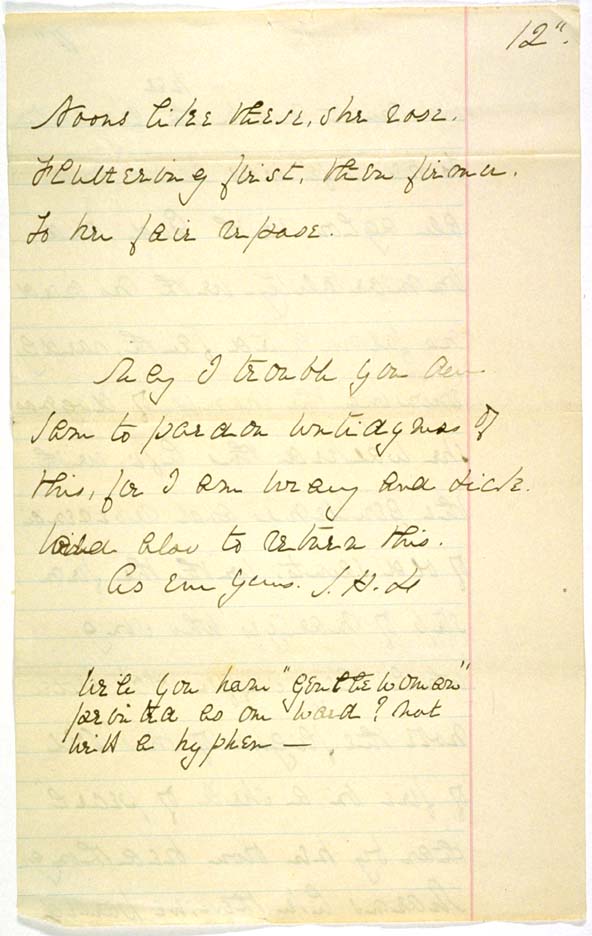 12".
Noons like these, she rose.
Fluttering first, then firmer.
To her fair repose.
May I trouble you
Sam to pardon untidyness of
this, for I am weary and sick.
also to return this.
As ever yours. S. H. D
Will you have "gentlewoman"
printed as one word? not
with a hyphen —